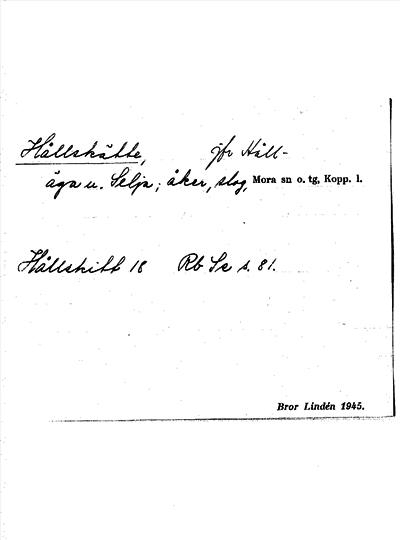 Hållskätte, jfr Håll-
äga u. Selja; åker, slog, Mora sn o. tg, Kopp. l.
Hållskitt 18 Rb Se s. 81.
Bror Lindén 1945.